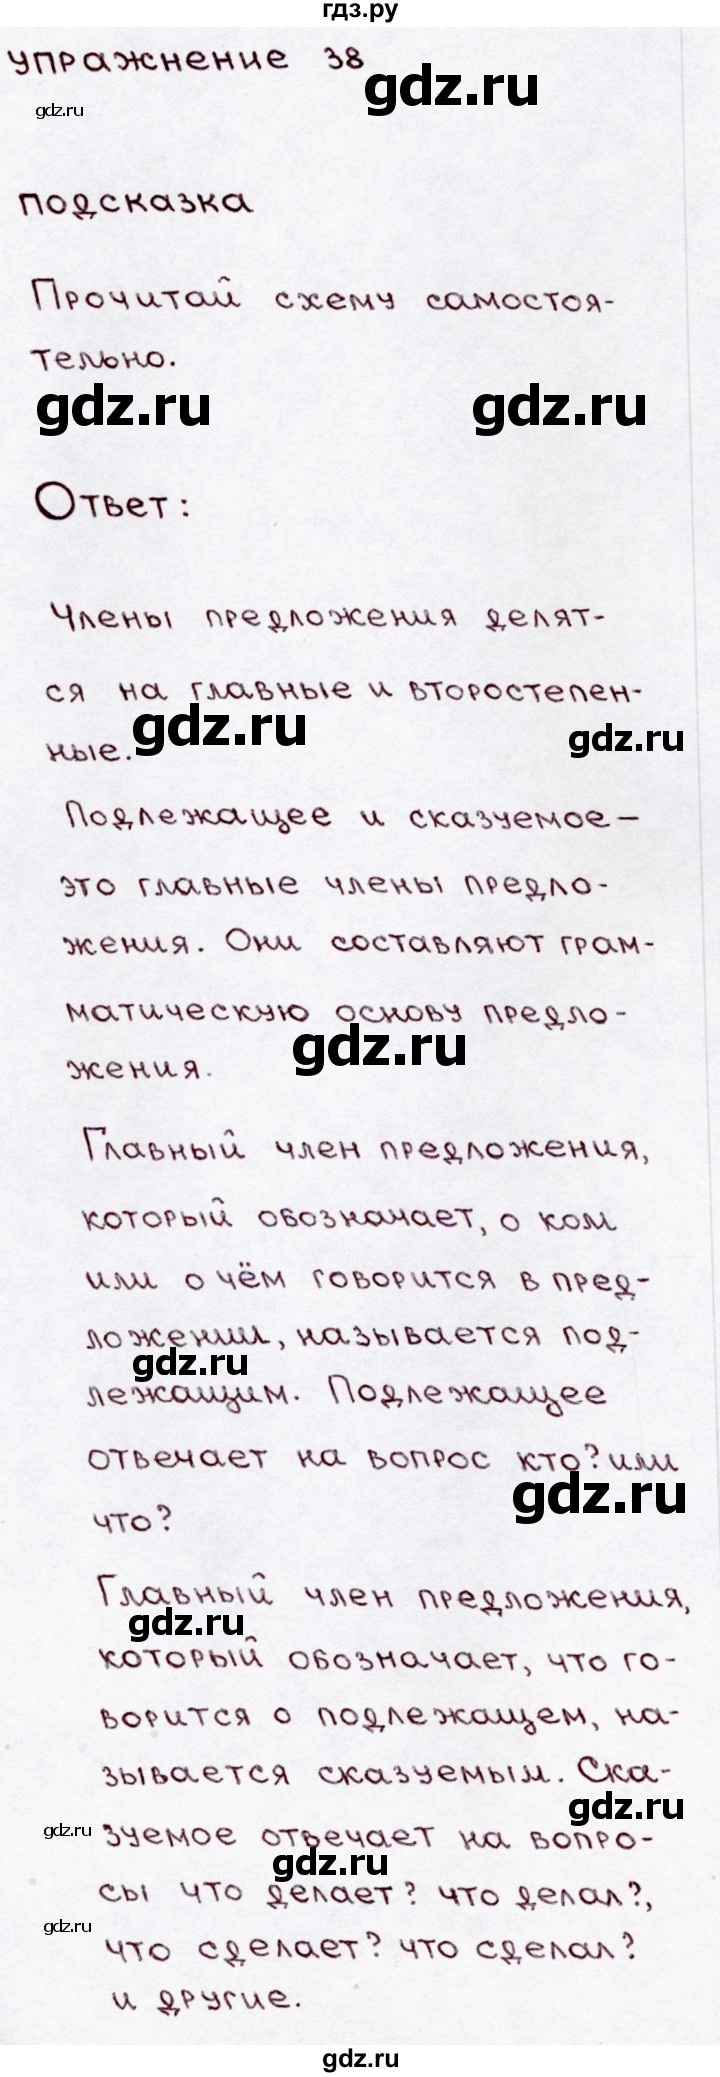 гдз.ру
упражнение 38
gdz.ru
gdz.ru
подсказка
Прочитай схему самостоя-
тельно.
gdz.ru gdz.ru
Ответ:
Члены предложения делят-
ся на главные и второстепен-
gdz.ru gdz.ru
ные.
Подлежащее и сказуемое –
это главные члены предло-
жения. Они составляют грам-
матическую основу предло-
gdz.ru
жения.
Главный член предложения,
который обозначает, о ком
или о чём говорится в пред-
ложении, называется под-
gdz.ru
лежащим. Подлежащее
отвечает на вопрос кто? или
gdz.ru
что?
Главный член предложения,
gdz.ru
который обозначает, что го-
ворится о подлежащем, на-
зывается сказуемым. Ска-
gdz.ru
gdz.ru
зуемое отвечает на вопро-
gdz.ru
сы что делает? что делал?,
gdz.ru
что сделает? что сделал?
и другие.
gdz.ru